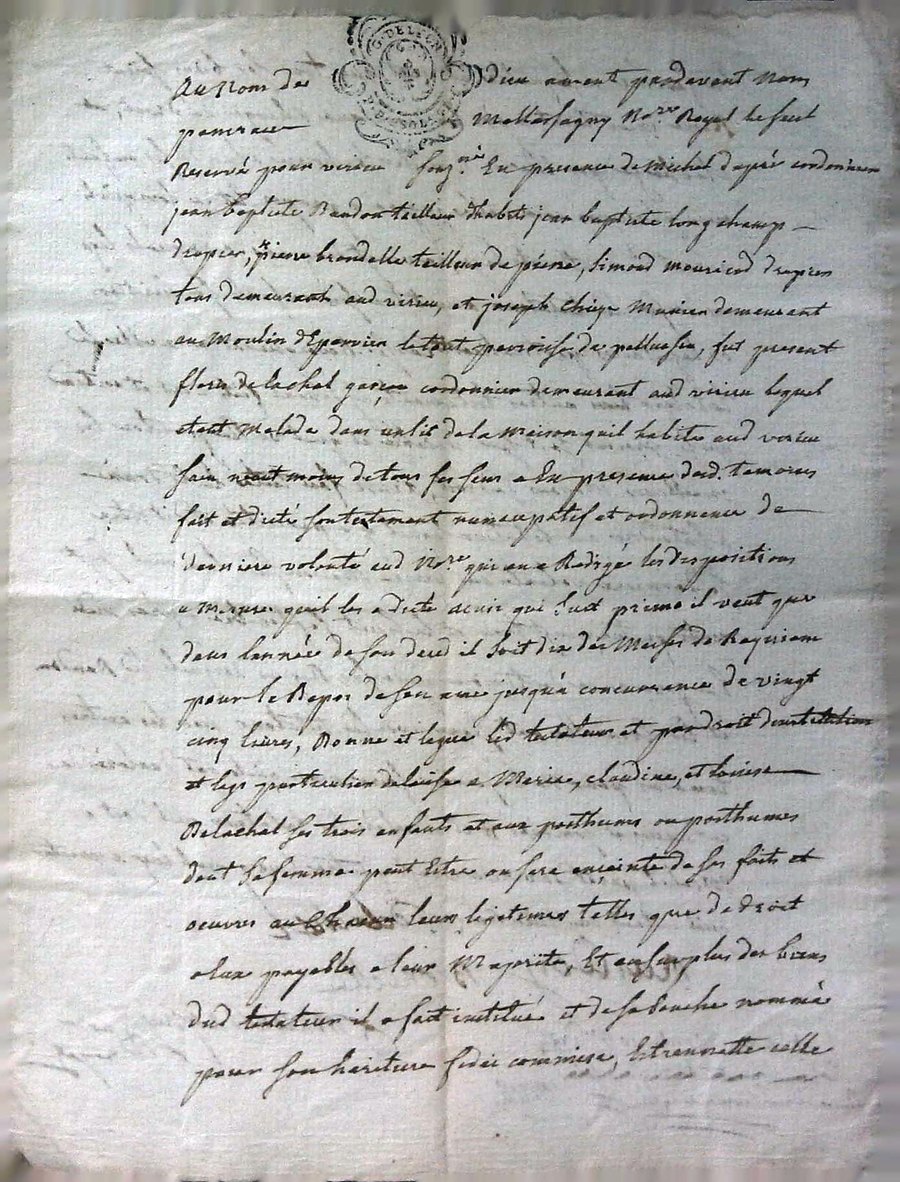 Au Nom de dieu amen pardevant nous
G. DELFIN
Not.re Royal le seul
Reservé pour virieu soug.né En presence de Michel depré cordonnier
jean baptiste Baudon tailleur dhabits jean baptiste longchamp
drapier, pierre brondelle tailleur de pierre, Simond mouricod drapier
tous demeurants aud virieu, et joseph Munier demeurant
au Moulin dEparvier le tout parroisse de , fut present
flory delachal garçon cordonnier demeurant aud virieu lequel
etant Malade dans un lit de la Maison quil habite aud virieu
sain neant moins de tous ses sens a En presence desd. temoins
fait et dicté son testament nuncupatif et ordonnance de
derniere volonté aud No.re qui en a Redigé les dispositions
a Mesure quil les a dicté ainsi qui Suit primo il veut que
dans lannée de son deced il soit dit des Messes de Requiem
pour le Repos de son ame jusqu'a concurrance de vingt
cinq livres, Donne et legue led testateur et par droit dinstitution
et legs particulier delaisse a Marie, claudine, et louise
Delachal ses trois enfants et aux posthume ou posthumes
dont sa femme peut Estre ou sera enceinte de ses faits et
oeuvres a Chacun leurs legitimes telles que de droit
a eux payables a leur Majorité, Et au surplus des biens
dud testateur il a fait institué et de sa bouche nommé
pour son heritiere fidei commise, Estiennette celle